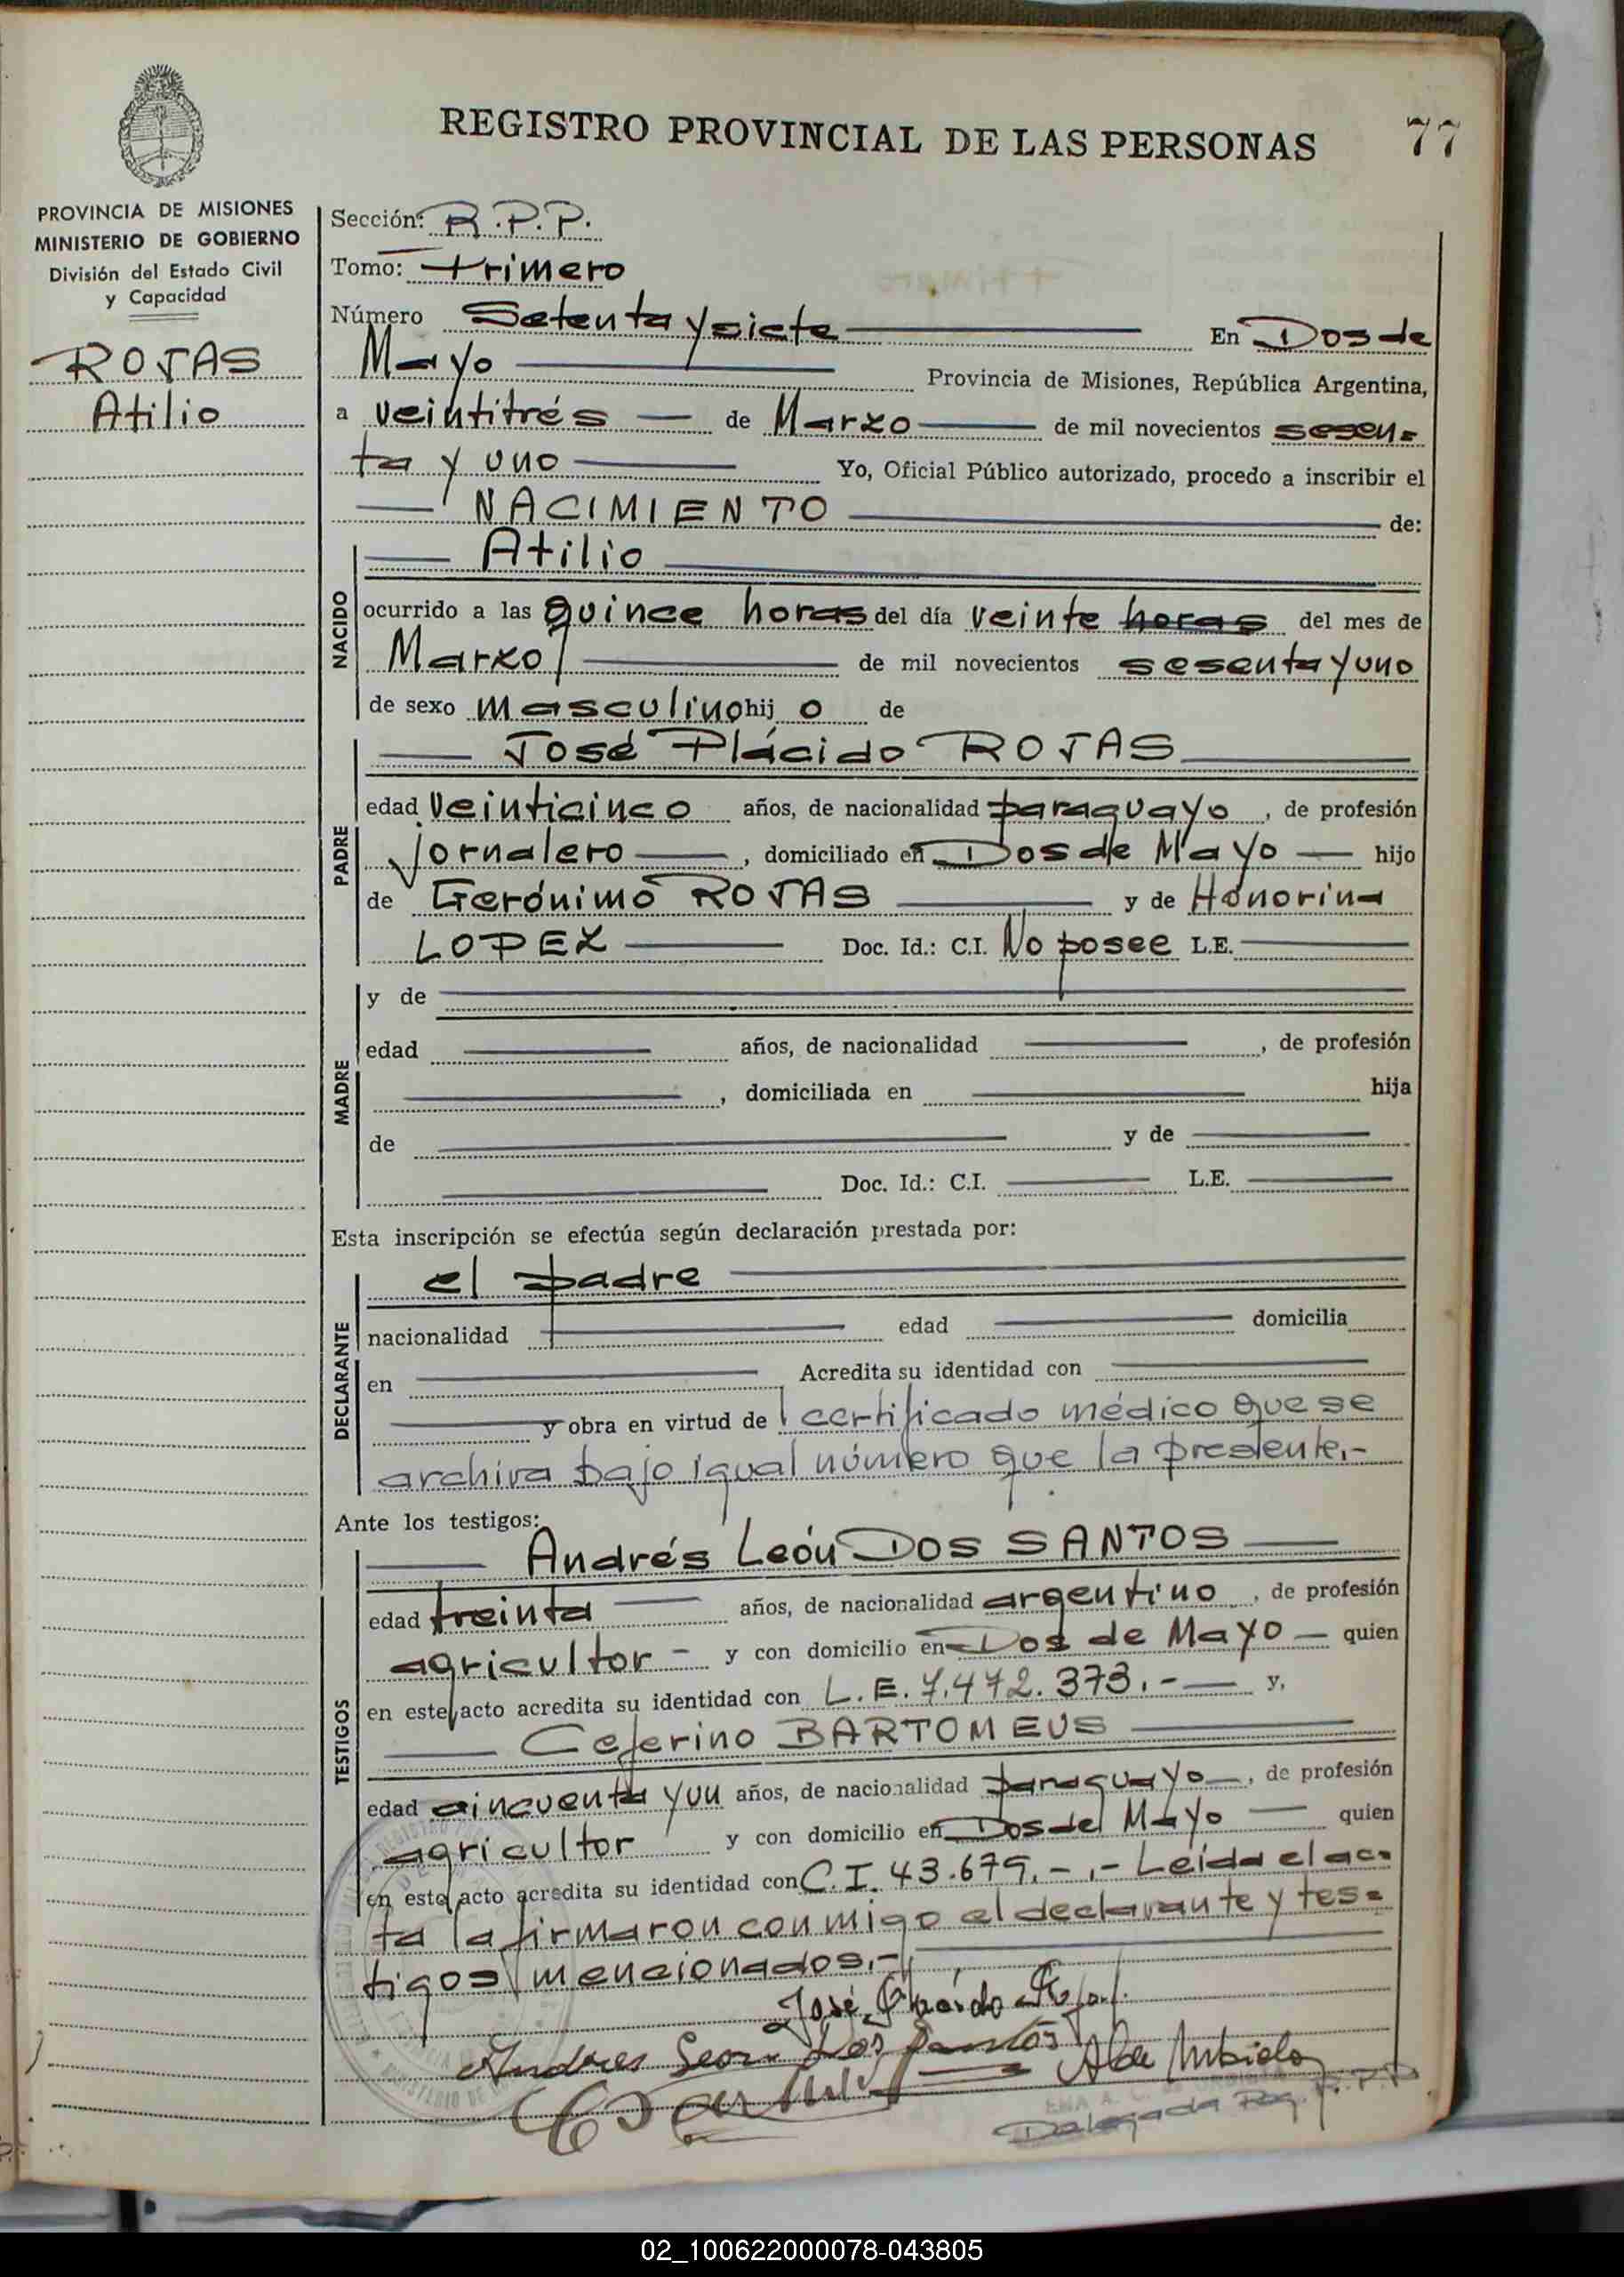 REGISTRO PROVINCIAL DE LAS PERSONAS 77
PROVINCIA DE MISIONES
MINISTERIO DE GOBIERNO
División del Estado Civil
y Capacidad
ROJAS
Atilio
Sección: R.P.P.
Tomo: Primero
Número Setenta y siete En Dos de
Mayo Provincia de Misiones, República Argentina,
a veintitrés de Marzo de mil novecientos sesen=
ta y uno Yo, Oficial Público autorizado, procedo a inscribir el
NACIMIENTO de:
NACIDO
Atilio
ocurrido a las quince horas del día veinte horas del mes de
Marzo de mil novecientos sesenta y uno
de sexo masculino hij o de
PADRE
José Plácido ROJAS
edad veinticinco años, de nacionalidad paraguayo, de profesión
jornalero, domiciliado en Dos de Mayo hijo
de Gerónimo ROJAS y de Honorina
LOPEZ Doc. Id.: C.I. No posee L.E.
MADRE
y de
edad años, de nacionalidad , de profesión
, domiciliada en hija
de y de
Doc. Id.: C.I. L.E.
Esta inscripción se efectúa según declaración prestada por:
DECLARANTE
el padre
nacionalidad edad domicilia
en Acredita su identidad con
y obra en virtud de certificado médico que se
archiva bajo igual número que la presente.-
Ante los testigos:
TESTIGOS
Andrés León DOS SANTOS
edad treinta años, de nacionalidad argentino, de profesión
agricultor - y con domicilio en Dos de Mayo quien
en este acto acredita su identidad con L.E. 7.472.373.- y,
Ceferino BARTOMEUS
edad cincuenta y un años, de nacionalidad paraguayo, de profesión
agricultor y con domicilio en Dos de Mayo quien
en este acto acredita su identidad con C.I. 43.679.-.- Leída el ac=
ta la firmaron conmigo el declarante y tes=
tigos mencionados.-
José Plácido Rojas
Andres Leon Dos Santos
Delegada Reg. R.P.P.
02_100622000078-043805